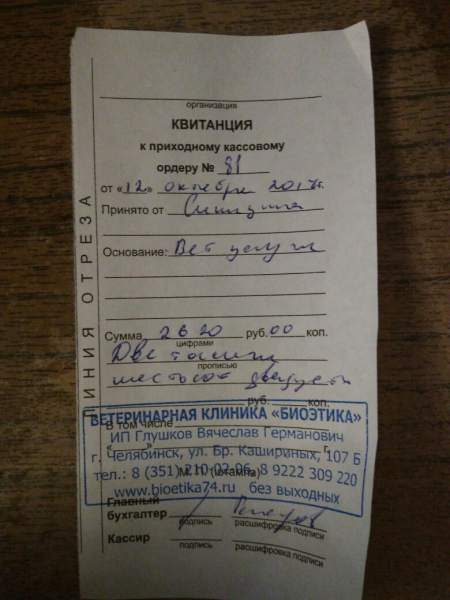 организация
КВИТАНЦИЯ
к приходному кассовому
ордеру № 81
от «12» октября 2017г.
Принято от Синицина
Основание: Вет услуги
Сумма 2620 руб. 00 коп.
цифрами
Две тысячи
прописью
шестьсот двадцать
руб. коп.
В том числе
ВЕТЕРИНАРНАЯ КЛИНИКА «БИОЭТИКА»
ИП Глушков Вячеслав Германович
г. Челябинск, ул. Бр. Кашириных, 107 Б
тел.: 8 (351) 210-02-06, 8 9222 309 220
М. П. (штампа)
www.bioetika74.ru без выходных
Главный
бухгалтер
подпись расшифровка подписи
Кассир
подпись расшифровка подписи
ЛИНИЯ ОТРЕЗА